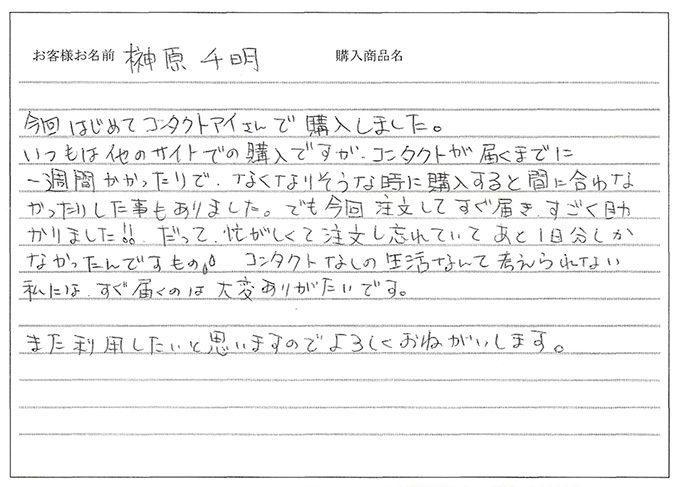 お客様お名前 榊原 千明 購入商品名
今回はじめてコンタクトアイさんで購入しました。
いつもは他のサイトでの購入ですが、コンタクトが届くまでに
一週間かかったりで、なくなりそうな時に購入すると間に合わな
かったりした事もありました。でも今回注文してすぐ届き、すごく助
かりました!!、だって、忙がしくて注文し忘れていてあと1日分しか
なかったんですもの。 コンタクトなしの生活なんて考えられない
私には、すぐ届くのは大変ありがたいです。
また利用したいと思いますのでよろしくおねがいします。